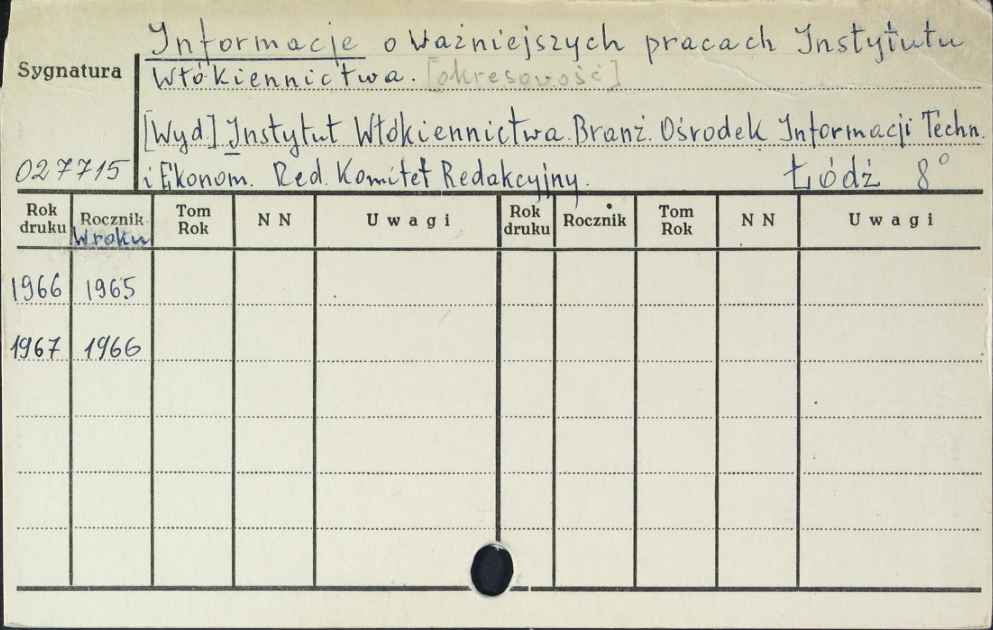 Informacje o ważniejszych pracach Instytutu
Sygnatura
Włókiennictwa. [okresowość]
[Wyd.] Instytut Włókiennictwa. Branż. Ośrodek Informacji Techn.
027715 i Ekonom. Red. Komitet Redakcyjny. Łódź 8°
Rok druku Rocznik W roku Tom Rok N N Uwagi Rok druku Rocznik Tom Rok N N Uwagi
1966 1965
1967 1966